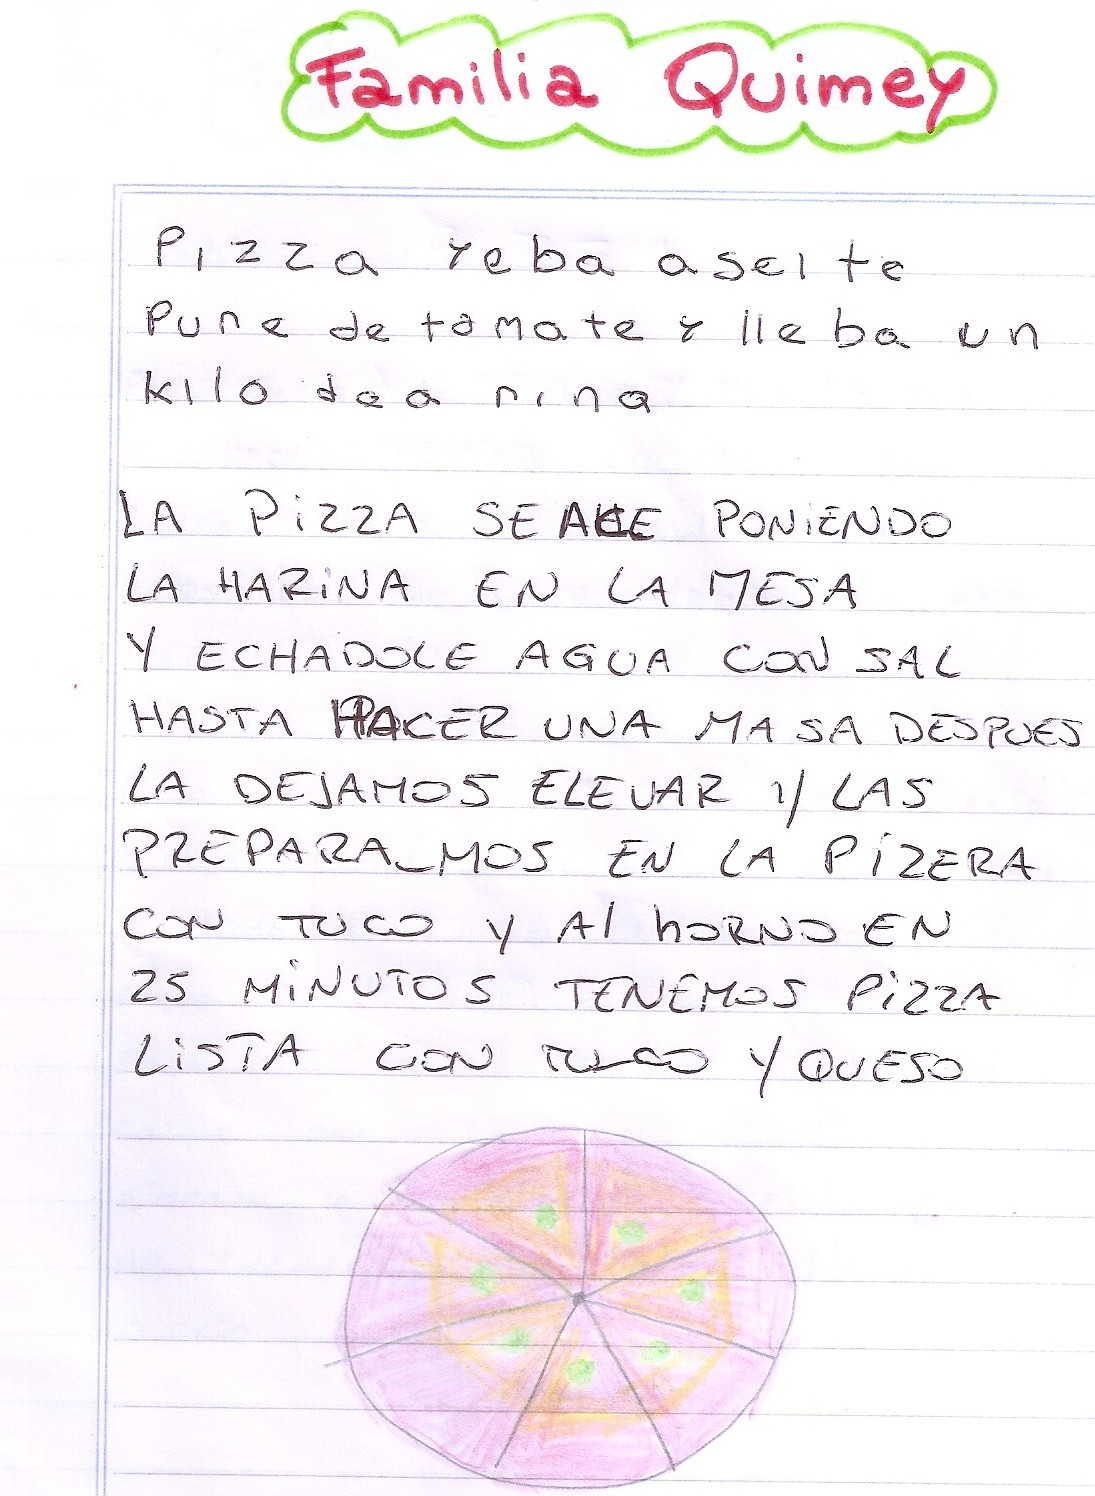 Familia Quimey
Pizza yeba aseite
Pure de tomate y lleba un
kilo dea rina
LA PiZZA SE ACE PONiENDO
LA HARiNA EN LA MESA
Y ECHADOLE AGUA CON SAL
HASTA HACER UNA MASA DESPUES
LA DEJAMOS ELEVAR Y LAS
PREPARA_MOS EN LA PiZERA
CON TUCO Y Al hORNO EN
25 MiNUTOS TENEMOS PiZZA
LiSTA CON TUCO Y QUESO